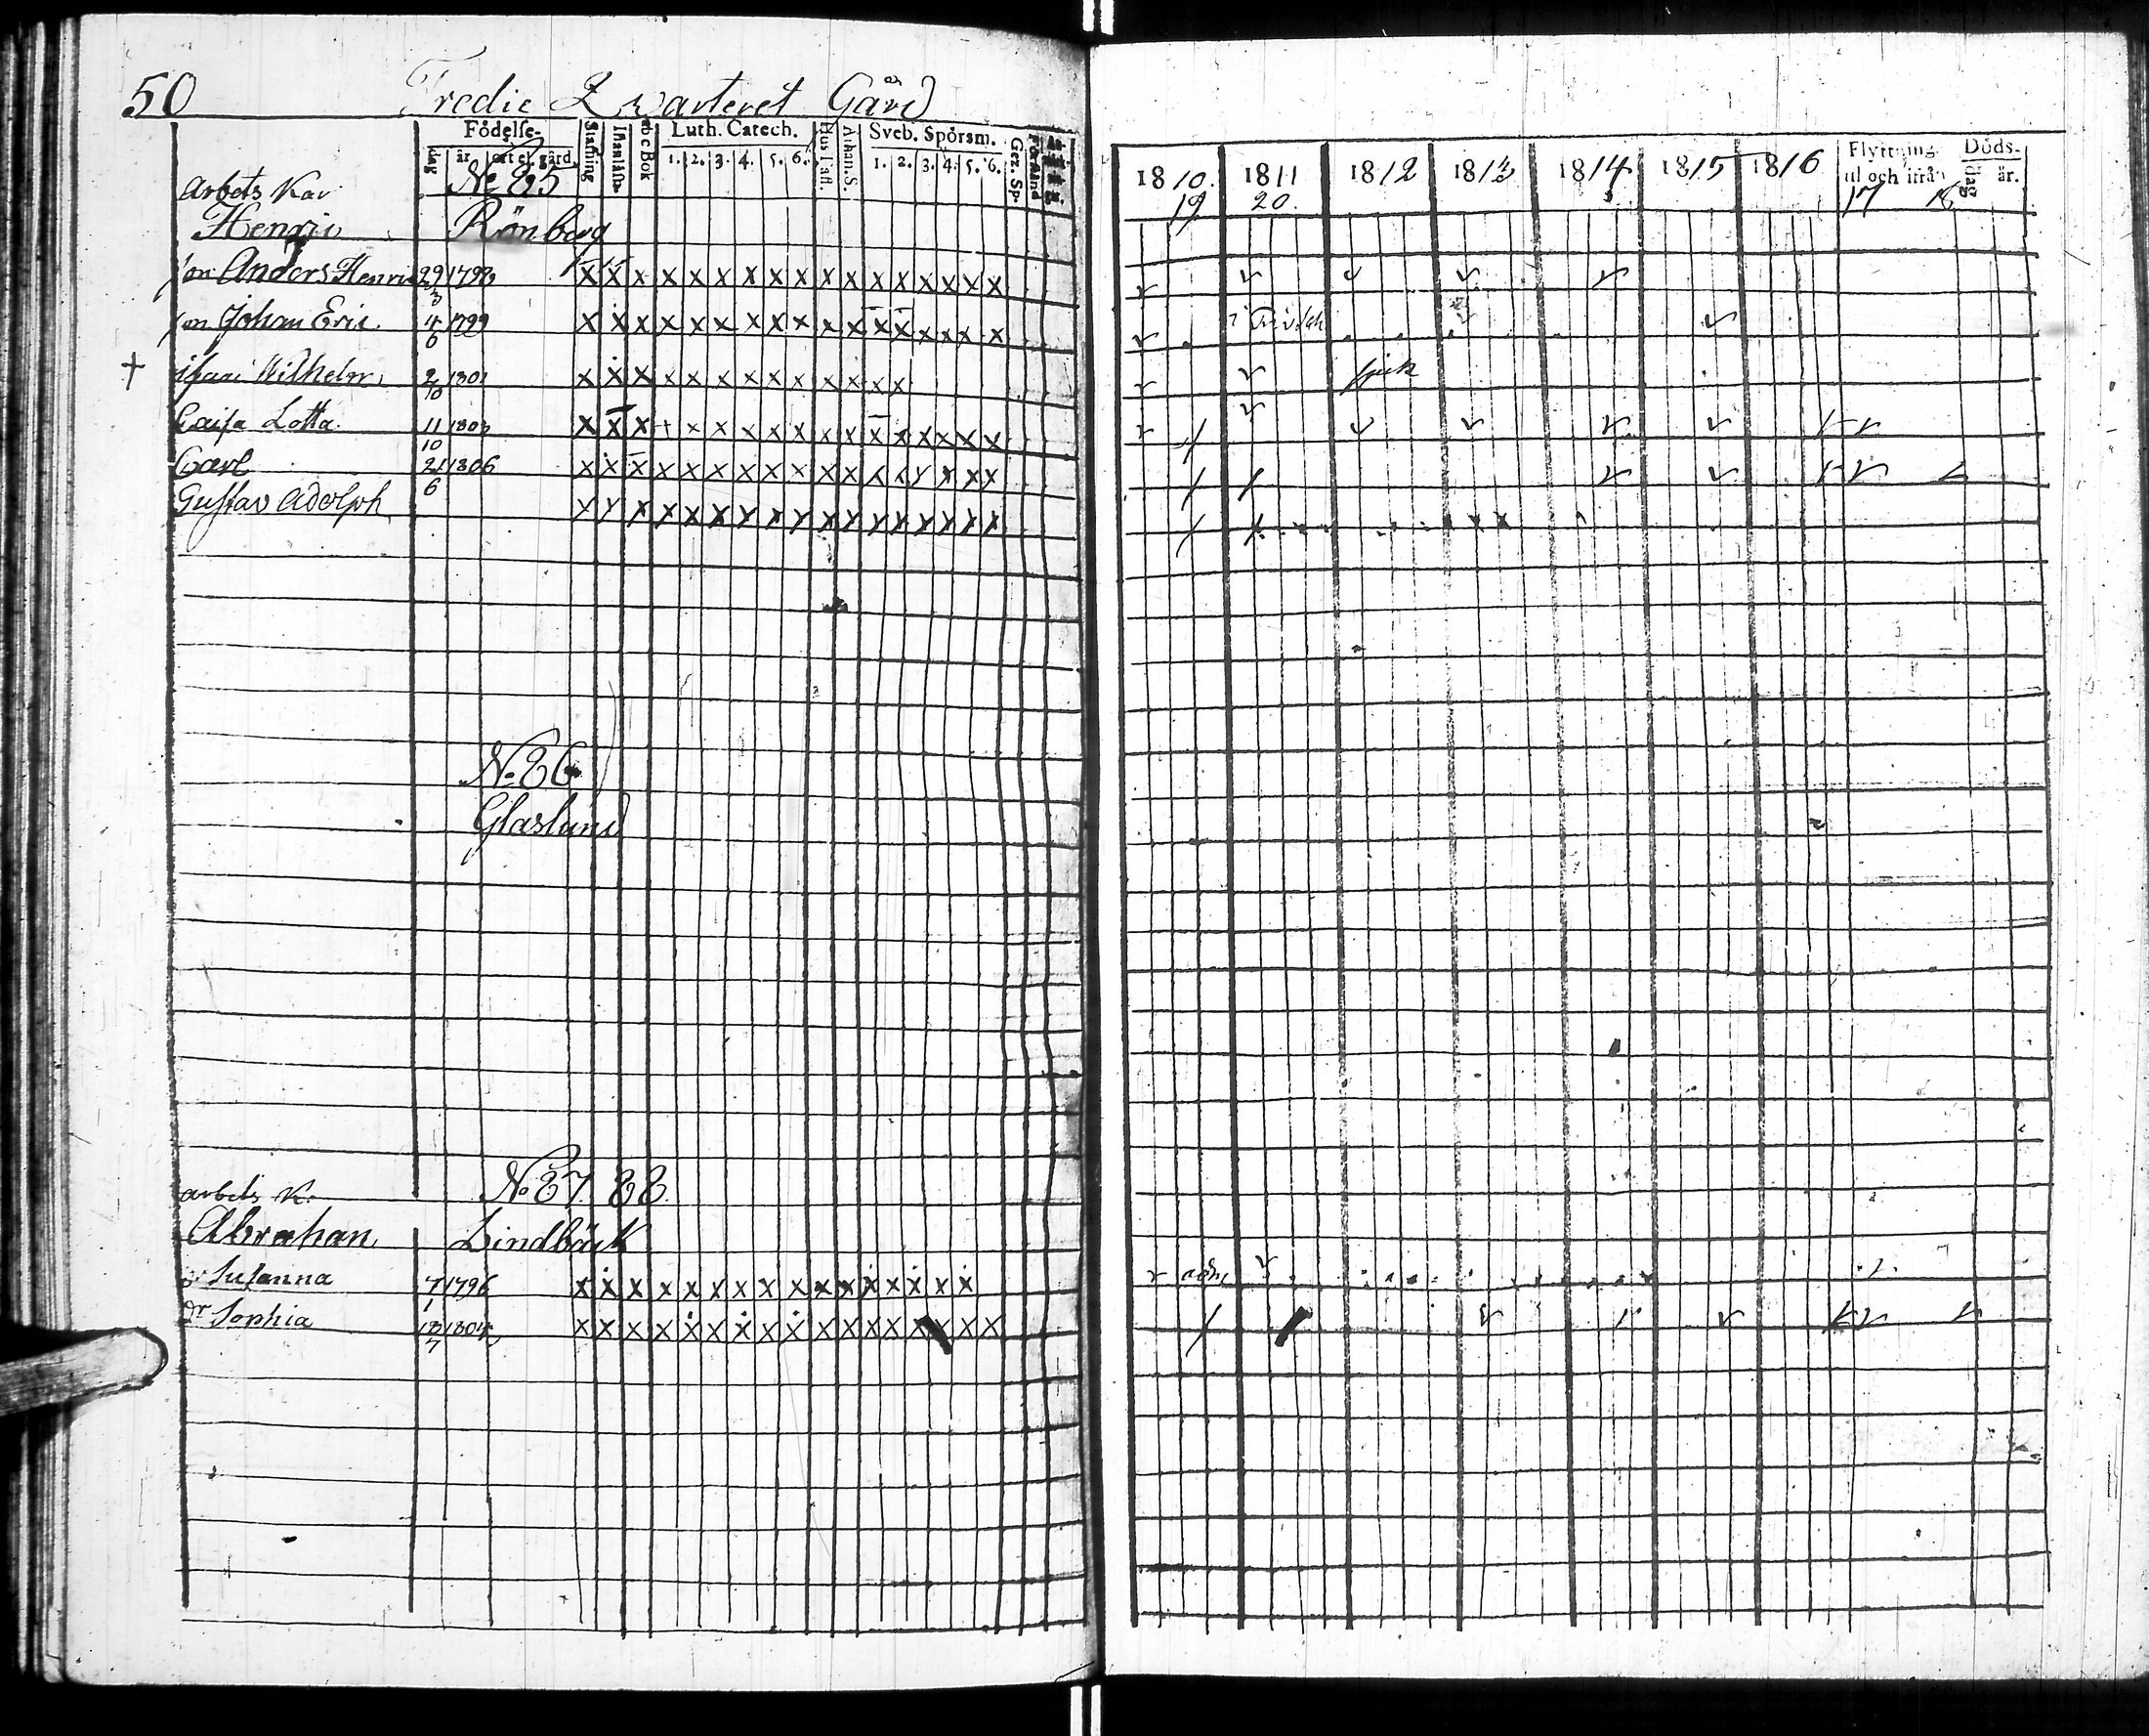 50 Tredie Qwarteret Gård
Födelse- Stafning Innanläsn. abc Bok Luth. Catech. Hus Tafl. Athan. S. Sveb. Spörsm. Gez. Sp. Förstånd
dag år ort el. gård 1. 2. 3. 4. 5. 6. 1. 2. 3. 4. 5. 6.
1810. 1811 1812 1813 1814 1815 1816 Flyttning til och ifrån Döds- dag år.
19 20. 17 18
Arbets Kar No 85
Henric Rönberg
son Anders Henric 29/3 1798 x x x x x x x x x x x x x x x x x
son Johan Eric 4/6 1799 x x x x x x x x x x x x x x x x x
† Wilhelm 2/10 1801 x x x x x x x x x x x x x sjuk
Caisa Lotta 11/10 1803 x x x + x x x x x x x x x x x x x
Carl 21/6 1806 x x x x x x x x x x x x x x x x x
Gustav Adolph x x x x x x x x x x x x x x x x x
No 86
Glaslund
arbets K. No 87. 88
Abraham Lindbäck
dr Susanna 7/1 1796 x x x x x x x x x x x x x x x x
dr Sophia 18/7 1804 x x x x x x x x x x x x x x x x x